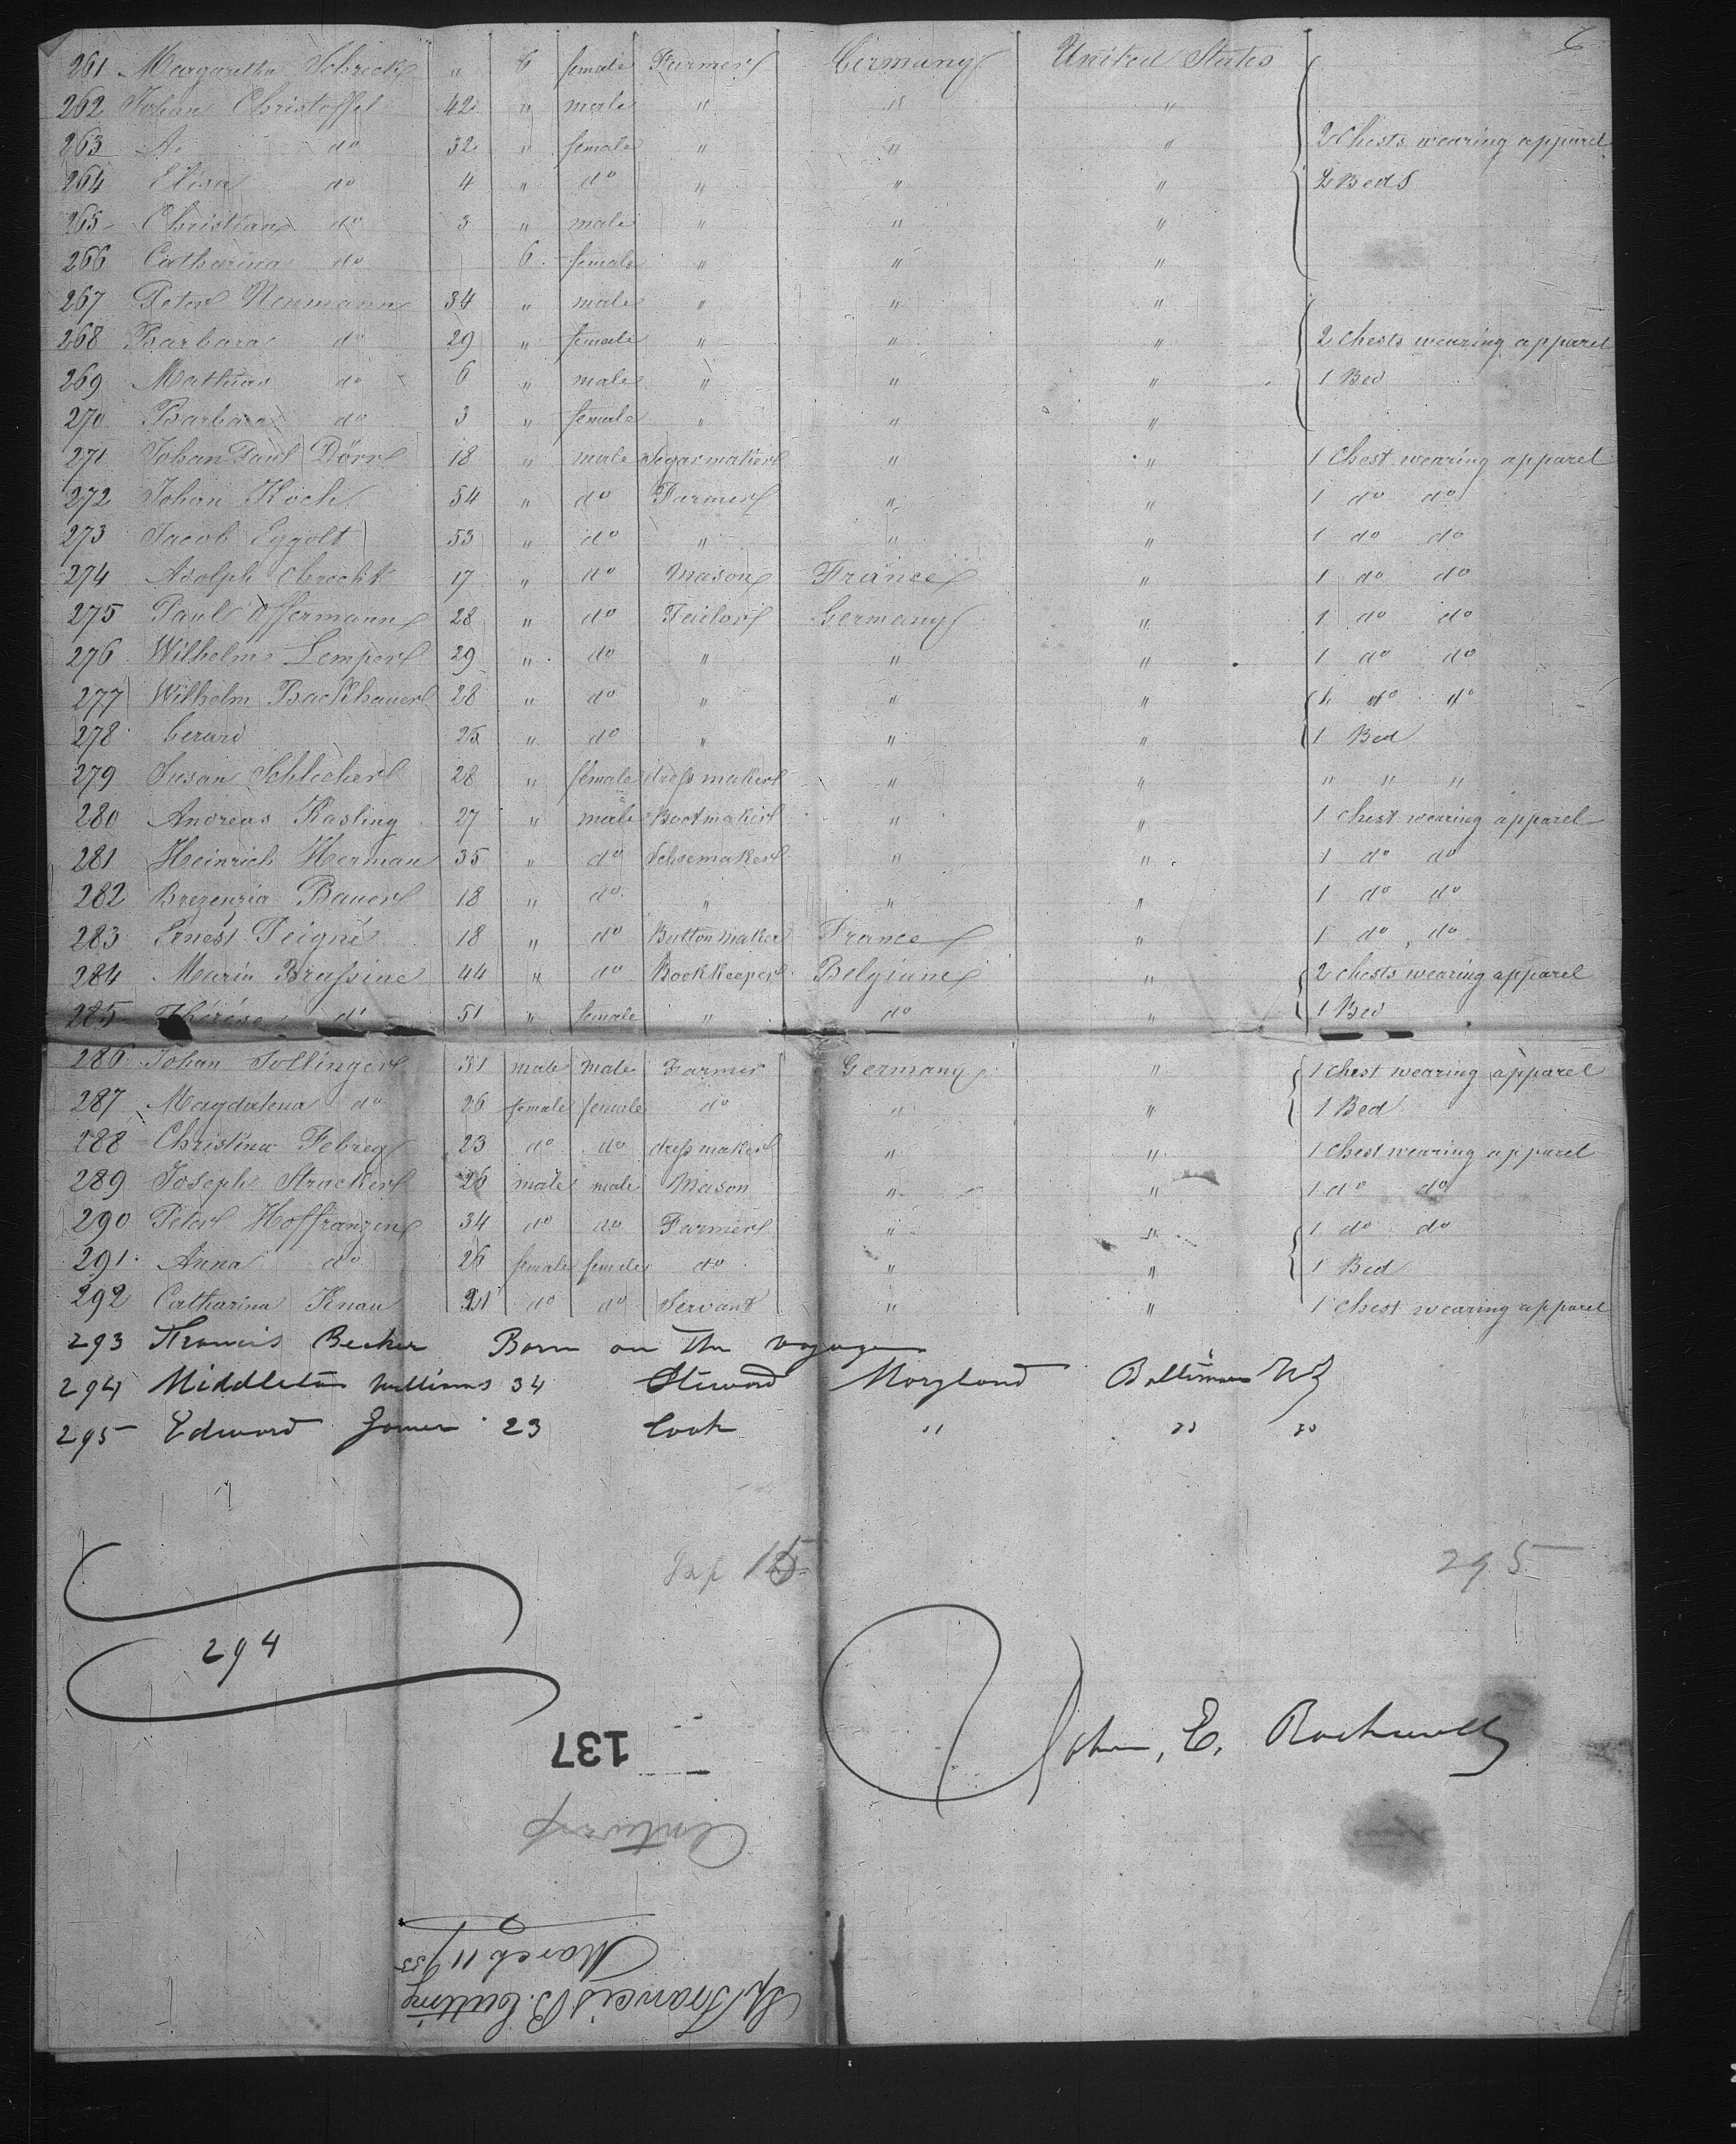 6
261 Margaretha Schrick " 6 female Farmer Germany United States
262 Johan Christoffel 42 " male " " "
263 A. do 32 " female " " " 2 Chests wearing apparel
264 Elisa do 4 " do " " " 2 Beds
265 Christian do 3 " male " " "
266 Catharina do 6 female " " "
267 Peter Neumann 34 " male " " "
268 Barbara do 29 " female " " " 2 chests wearing apparel
269 Mathias do 6 " male " " " 1 Bed
270 Barbara do 3 " female " " "
271 Johan Paul Dörr 18 " male Segarmaker " " 1 Chest wearing apparel
272 Johan Koch 54 " do Farmer " " 1 do do
273 Jacob Eggolt 53 " do " " " 1 do do
274 Adolph Obrecht 17 " do Mason France " 1 do do
275 Paul Offermann 28 " do Tailor Germany " 1 do do
276 Wilhelm Lemper 29 " do " " " 1 do do
277 Wilhelm Backhauer 28 " do " " " do do
278 Gerard 25 " do " " " 1 Bed
279 Susan Schlecher 28 " female dressmaker " " " " "
280 Andreas Kasling 27 " male Bootmaker " " 1 chest wearing apparel
281 Heinrich Herman 35 " do Schoemaker " " 1 do do
282 Brezenzia Bauer 18 " do " " " 1 do do
283 Ernest Teigné 18 " do Button maker France " 1 do do
284 Marin Brassine 44 " do Bookkeeper Belgium " 2 chests wearing apparel
285 Thérése do 51 " female " do " 1 Bed
286 Johan Sollinger 31 male male Farmer Germany " 1 chest wearing apparel
287 Magdalena do 26 female female do " " 1 Bed
288 Christina Febrey 23 do do dressmaker " " 1 chest wearing apparel
289 Joseph Stracker 26 male male Mason " " 1 do do
290 Peter Hoffranzen 34 do do Farmer " " 1 do do
291 Anna do 26 female female do " " 1 Bed
292 Catharina Knau 21 do do Servant " " 1 chest wearing apparel
293 Francis Becker Born on the voyage
294 Middleton Williams 34 Steward Maryland Baltimore
295 Edward 23 Cook " " "
295
294
John, E. Rockwell
137
Antwerp
March 11/53
Sp Francis B. Cutting